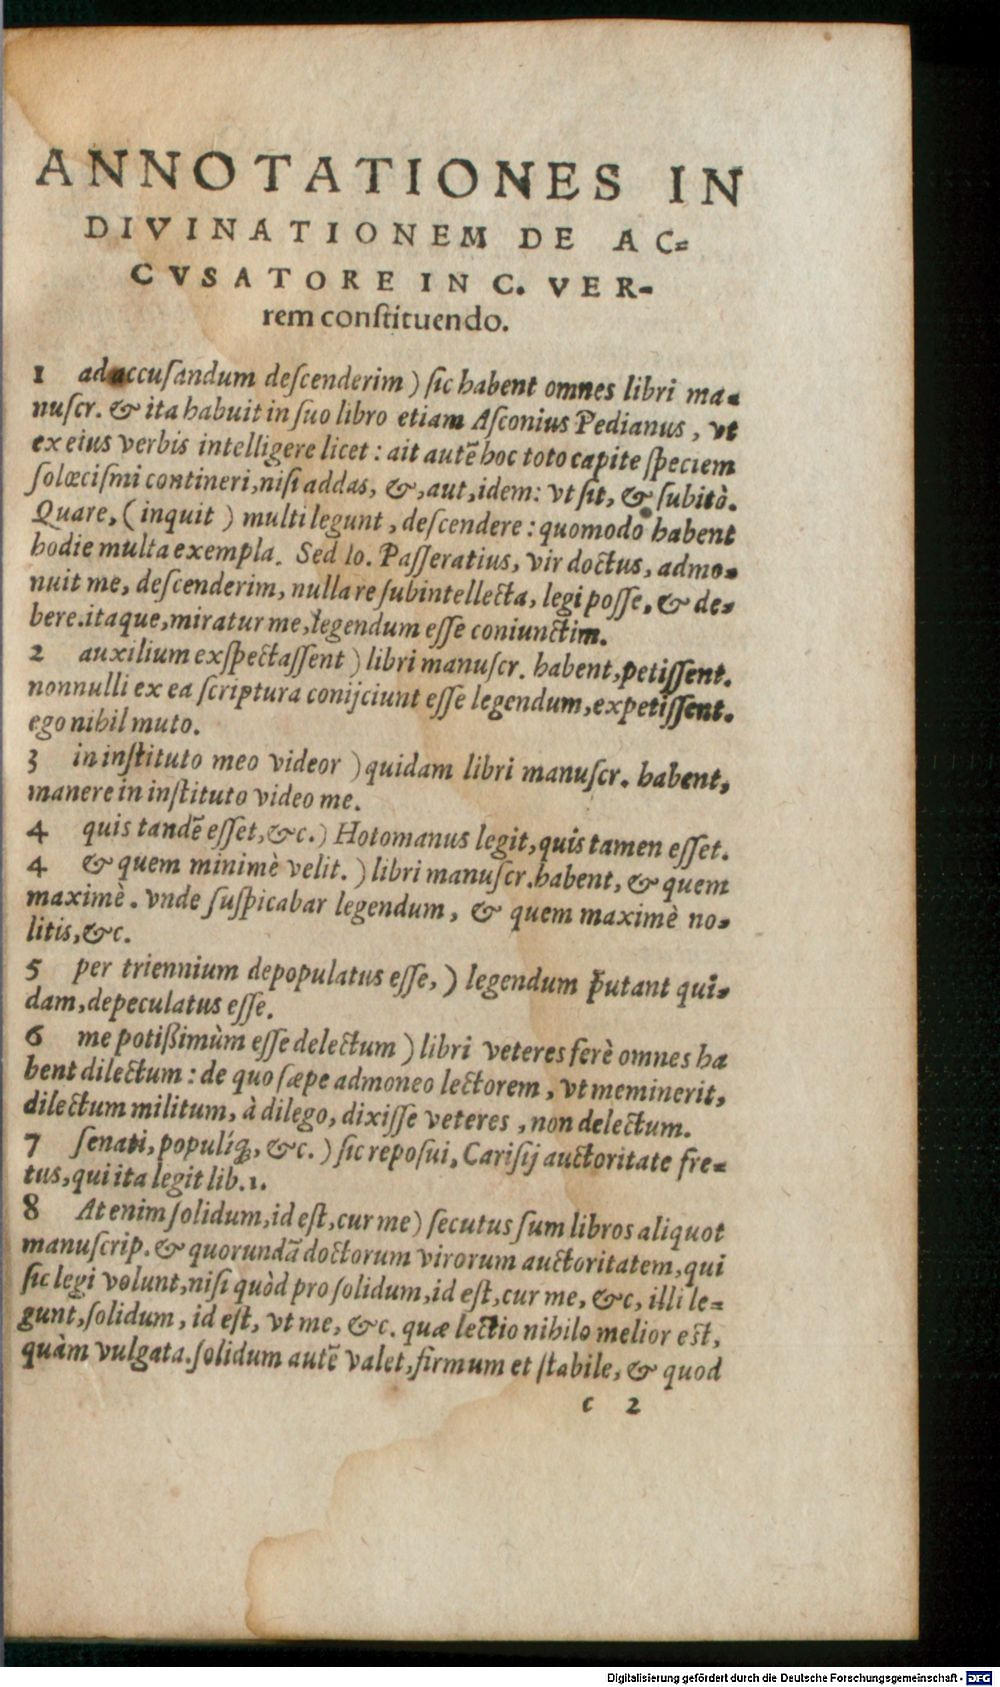 ANNOTATIONES IN
DIVINATIONEM DE AC=
CVSATORE IN C. VER-
rem conſtituendo.
1 ad accuſandum deſcenderim ) ſic habent omnes libri ma-
nuſcr. & ita habuit in ſuo libro etiam Aſconius Pedianus, vt
ex eius verbis intelligere licet : ait autē hoc toto capite ſpeciem
ſolœciſmi contineri, niſi addas, &, aut, idem: vt ſit, & ſubitò.
Quare, ( inquit ) multi legunt, deſcendere : quomodo habent
hodie multa exempla. Sed Io. Paſſeratius, vir doctus, admo-
nuit me, deſcenderim, nulla re ſubintellecta, legi poſſe, & de-
bere. itaque, miratur me, legendum eſſe coniunctim.
2 auxilium exſpectaſſent ) libri manuſcr. habent, petiſſent.
nonnulli ex ea ſcriptura conijciunt eſſe legendum, expetiſſent.
ego nihil muto.
3 in inſtituto meo videor ) quidam libri manuſcr. habent,
manere in inſtituto video me.
4 quis tandē eſſet, &c. ) Hotomanus legit, quis tamen eſſet.
4 & quem minimè velit. ) libri manuſcr. habent, & quem
maximè. vnde ſuſpicabar legendum, & quem maximè no-
litis, &c.
5 per triennium depopulatus eſſe, ) legendum putant qui-
dam, depeculatus eſſe.
6 me potißimùm eſſe delectum ) libri veteres ferè omnes ha
bent dilectum : de quo ſæpe admoneo lectorem, vt meminerit,
dilectum militum, à dilego, dixiſſe veteres, non delectum.
7 ſenati, populíq;, &c. ) ſic repoſui, Cariſij auctoritate fre-
tus, qui ita legit lib. 1.
8 At enim ſolidum, id eſt, cur me ) ſecutus ſum libros aliquot
manuſcrip. & quorundā doctorum virorum auctoritatem, qui
ſic legi volunt, niſi quòd pro ſolidum, id eſt, cur me, &c, illi le=
gunt, ſolidum, id eſt, vt me, &c. quæ lectio nihilo melior eſt,
quàm vulgata. ſolidum autē valet, firmum et ſtabile, & quod
c 2
Digitalisierung gefördert durch die Deutsche Forschungsgemeinschaft - DFG